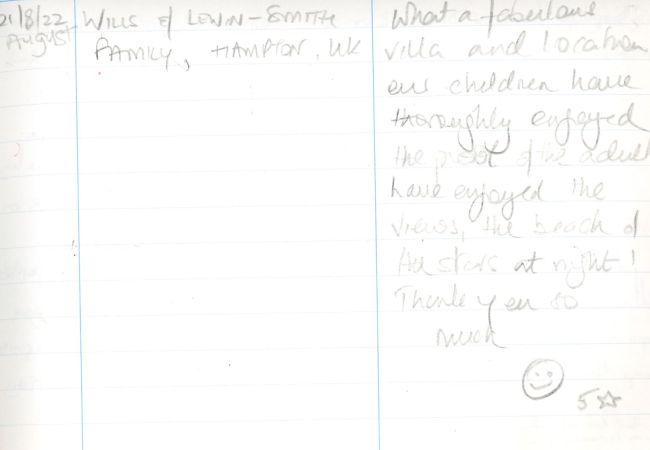 21/8/22 August
WILLS & LEWIN-SMITH
FAMILY, HAMPTON, UK
What a fabulous
villa and location
our children have
thoroughly enjoyed
the pool & the adults
have enjoyed the
views, the beach &
the stars at night!
Thank you so
much
5☆